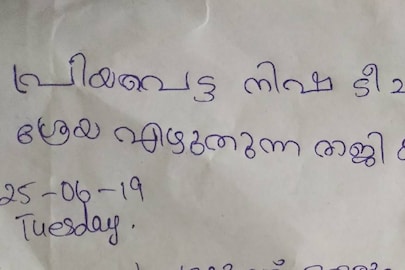 പ്രിയപ്പെട്ട നിഷ ടീ
ശ്രേയ എഴുതുന്ന രാജി
25-06-19
Tuesday.